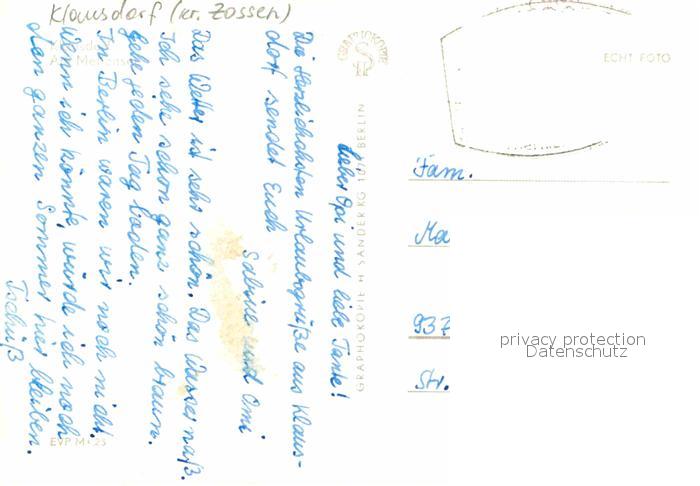 Klausdorf (Kr. Zossen)
Lieber Opi und liebe Tante!
Die herzlichsten Urlaubsgrüße aus Klaus-
dorf sendet Euch
Sabine und Omi
Das Wetter ist sehr schön. Das Wasser naß.
Ich sehe schon ganz schön braun.
Gehe jeden Tag baden.
In Berlin waren wir noch nicht.
Wenn ich könnte, würde ich noch
den ganzen Sommer hier bleiben.
Tschüß
GRAPHOKOPIE
GRAPHOKOPIE H SANDER KG 107 BERLIN
EVP M 0,25
ECHT FOTO
Fam.
Ma
937
Str.
privacy protection
Datenschutz